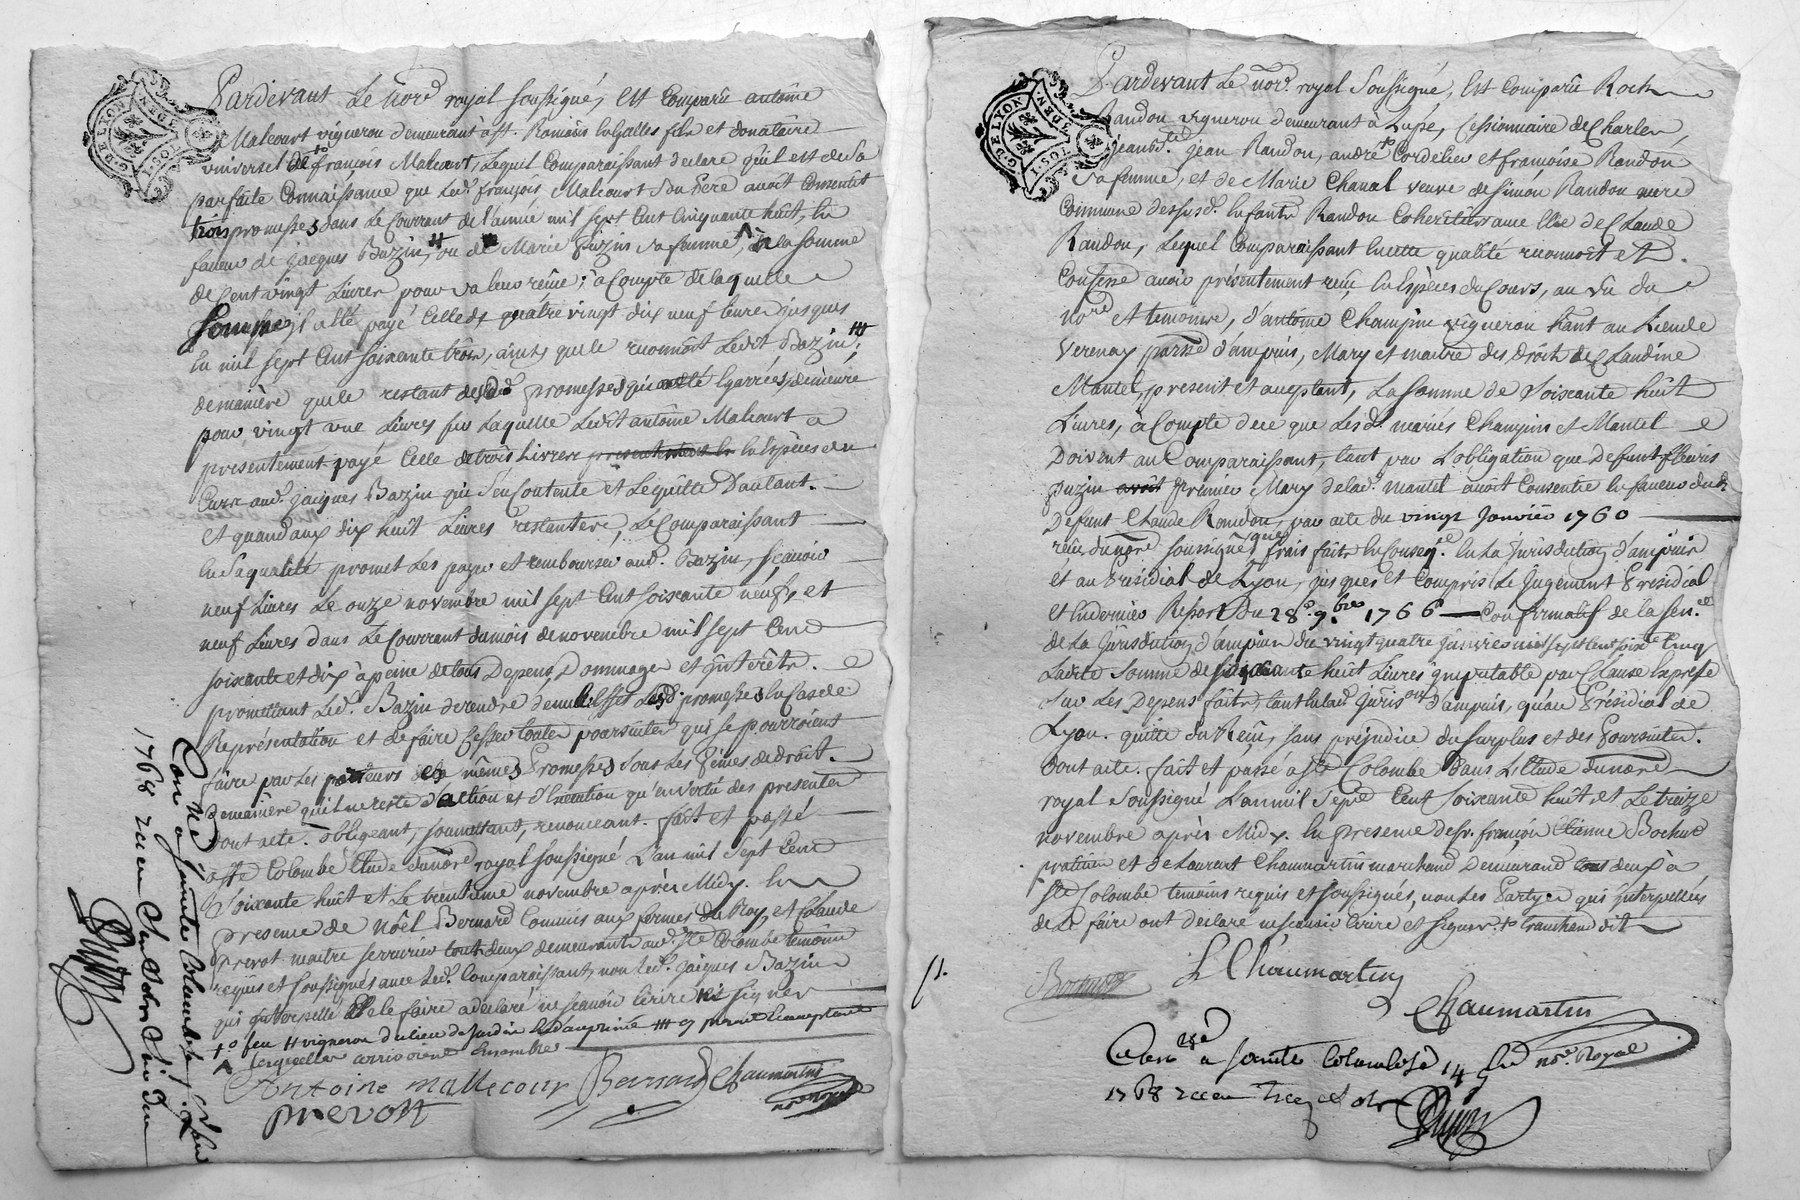 Pardevant Le no.re royal soussigné, Est Comparû antoine
Malcourt vigneron demeurant à st. Romain En Galles fils et donataire
universel de françois Malcourt, Lequel Comparaissant declare qu'il est de sa
parfaite Connaissance que Led. françois Malcourt son Pere avoit Consentit
trois promesses dans Le Courrant de l'année mil sept Cent Cinquante huit, En
faveur de jacques Bazin, ou de Marie puzin sa femme, de la somme
de Cent vingt Livres pour valeur reçüe; à Compte de laquelle
somme il a été payé Celle de quatre vingt dix neuf Livres jusques
En mil sept Cent soixante trois, ainsy que le reconnoît Ledit Bazin;
demanière que le restant desd. promesses qui ont été Egarrées, demeure
pour vingt une Livres sur Laquelle Ledit antoine Malcourt a
présentement payé Celle de trois Livres presentement En En Espèces du
Cours aud. jacques Bazin qui s'en Contente et Le quitte D'autant.
et quand aux dix huit Livres restantes, Le Comparaissant
En sa qualité promet Les payer et rembourser aud. Bazin, sçavoir
neuf Livres Le onze novembre mil sept Cent soixante neuf, et
neuf Livres dans Le Courrant du mois de novembre mil sept Cent
soixante et dix à peine de tous Depens, Dommages et intérêts.
promettant Led. Bazin de rendre de nul Effet Lesd. promesses En Cas de
Représentation et de faire Cesser toutes poursuites qui se pourroient
faire par Les porteurs des mêmes Promesses sous Les Peines de droit.
demanière qu'il ne reste d'action et d'Execution qu'en vertu des presentes
Dont acte. obligeant, soumettant, renonceant. fait et passé
à ste Colombe Etude du no.re royal soussigné L'an mil sept Cent
soixante huit et Le trentieme novembre après Midy. En
presence de Noël Bernard Commis aux fermes du Roy, et Claude
prevot maitre serrurier tout deux demeurants aud. ste Colombe temoins
requis et soussignés avec Led. Comparaissant, non Led. jacques Bazin
qui interpellé de le faire a declaré ne sçavoir Ecrire ni signer
+ feu # vigneron du lieu de jardin En dauphiné ## y present Et acceptant
Antoine mallecour Bernard Chaumartin
no.re royal
prevott
Con.né à sainte Colombe
1768 receu
Pardevant Le no.re royal soussigné, Est Comparû Roch
Randon vigneron demeurant à Lupé, Cessionnaire de Charles,
jean Randon, andré Cordelier et françoise Randon
sa femme, et de Marie Chaval veuve de simon Randon mere
Commune desd. Enfants Randon Coheritiers avec Elle de Claude
Randon, Lequel Comparaissant En cette qualité reconnoît et
Confesse avoir présentement reçu En Espèces du Cours, au vû du
no.re Et temoins, d'antoine Champin vigneron h.ant au Lieu de
Verenay parsse d'ampuis, Mary et maitre des droits de Claudine
Mantel, present et acceptant, La somme de soixante huit
Livres, à Compte de ce que Lesd. mariés Champin et Mantel
Doivent au Comparaissant, tant par L'obligation que Defunt fleuris
puzin avoit premier Mary de lad. Mantel avoit Consentie En faveur dud.
Defunt Claude Randon, par acte du vingt Janvier 1760
reçu du no.re soussigné, que frais faits En Conseq.ce En La Jurisdiction d'ampuis
et au Présidial de Lyon, jusques et Compris Le Jugement Presidial
et Endernier Resort Du 28.e 9.bre 1766 Confirmatif de la sen.ce
de La Jurisdiction d'ampuis du vingt quatre janvier mil sept Cent soix.te Cinq
Ladite somme de soixante huit Livres imputable par Clause Expresse
sur Les Depens faits, tant En lad. Juris.on d'ampuis, qu'au Présidial de
Lyon. quitte du Reçu, sans préjudice du surplus et des Poursuites.
Dont acte. fait et passé à ste Colombe Dans L'Etude du no.re
royal soussigné L'an mil sept Cent soixante huit, et Le treize
novembre après Midy. En presence de sr. françois Etienne Bochud
praticien et de Laurent Chaumartin marchand Demeurand tous deux à
ste Colombe temoins requis et soussignés, non Les Partyes qui interpellées
de Le faire ont declaré ne sçavoir Ecrire et signer.
L Chaumartin
Chaumartin
no.re Royal
à sainte Colombe Le 14 9bre
1768 receu